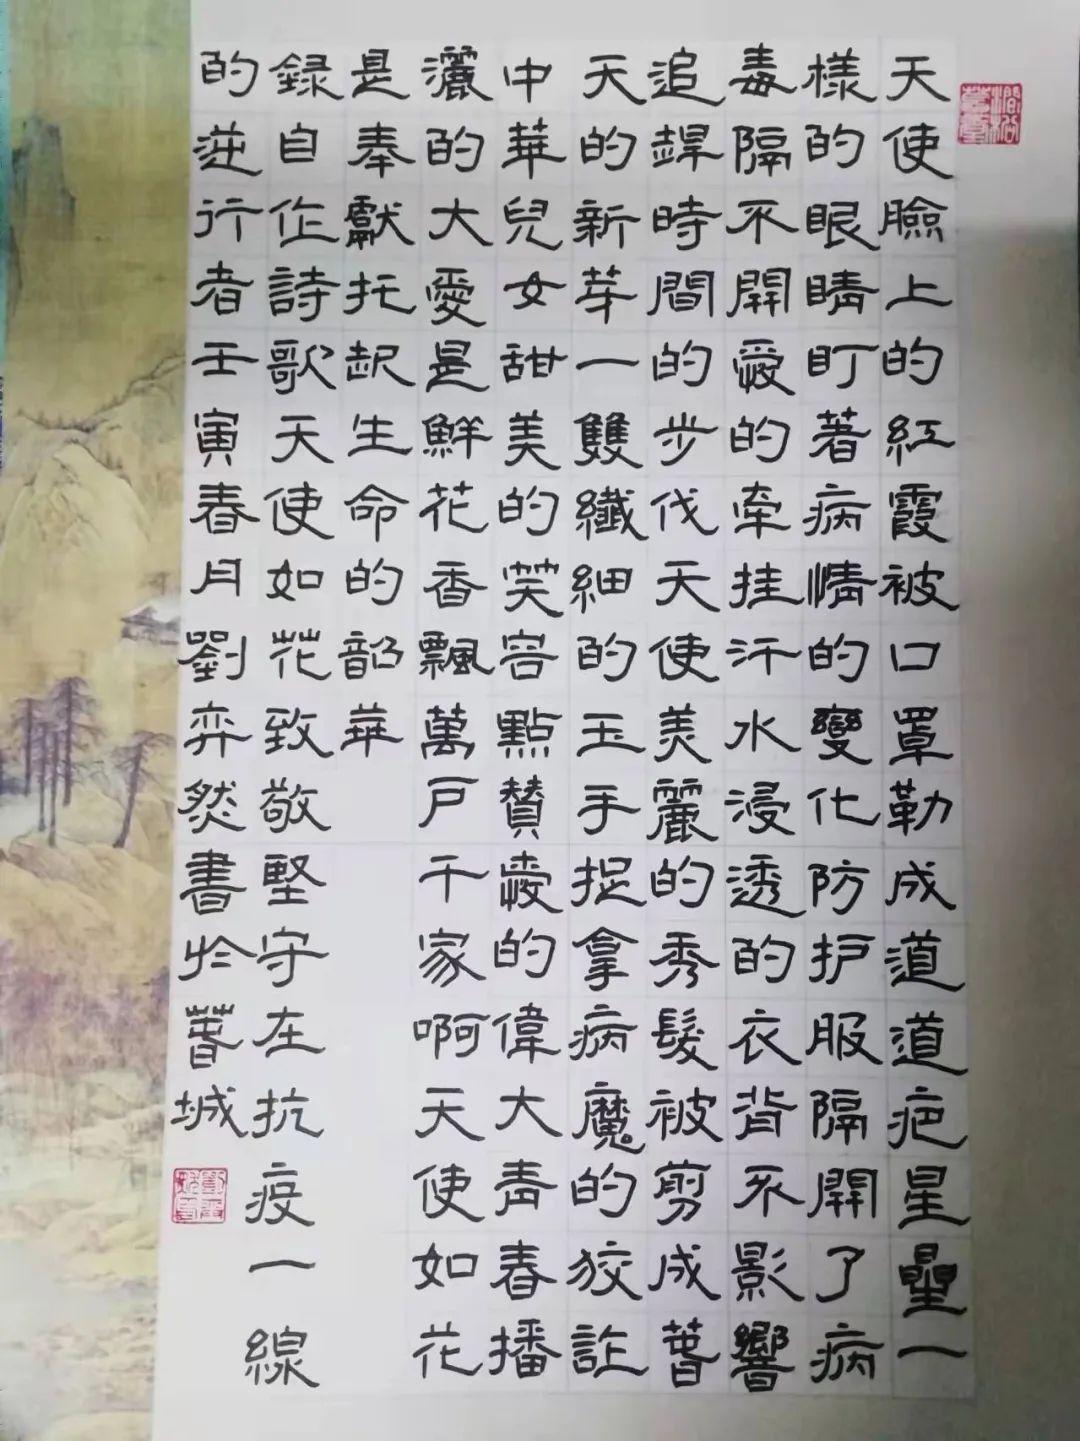 天使臉上的紅霞被口罩勒成道道疤星星一
樣的眼睛盯著病情的變化防护服隔開了病
毒隔不開愛的牽挂汗水浸透的衣背不影響
追趕時間的步伐天使美麗的秀髮被剪成萅
天的新芽一雙纖細的玉手捉拿病魔的狡詐
中華兒女甜美的笑容點贊愛的偉大青春播
灑的大愛是鮮花香飄萬戶千家啊天使如花
是奉獻托起生命的韶華
録自作詩歌天使如花致敬堅守在抗疫一線
的逆行者壬寅春月劉弈然書於萅城